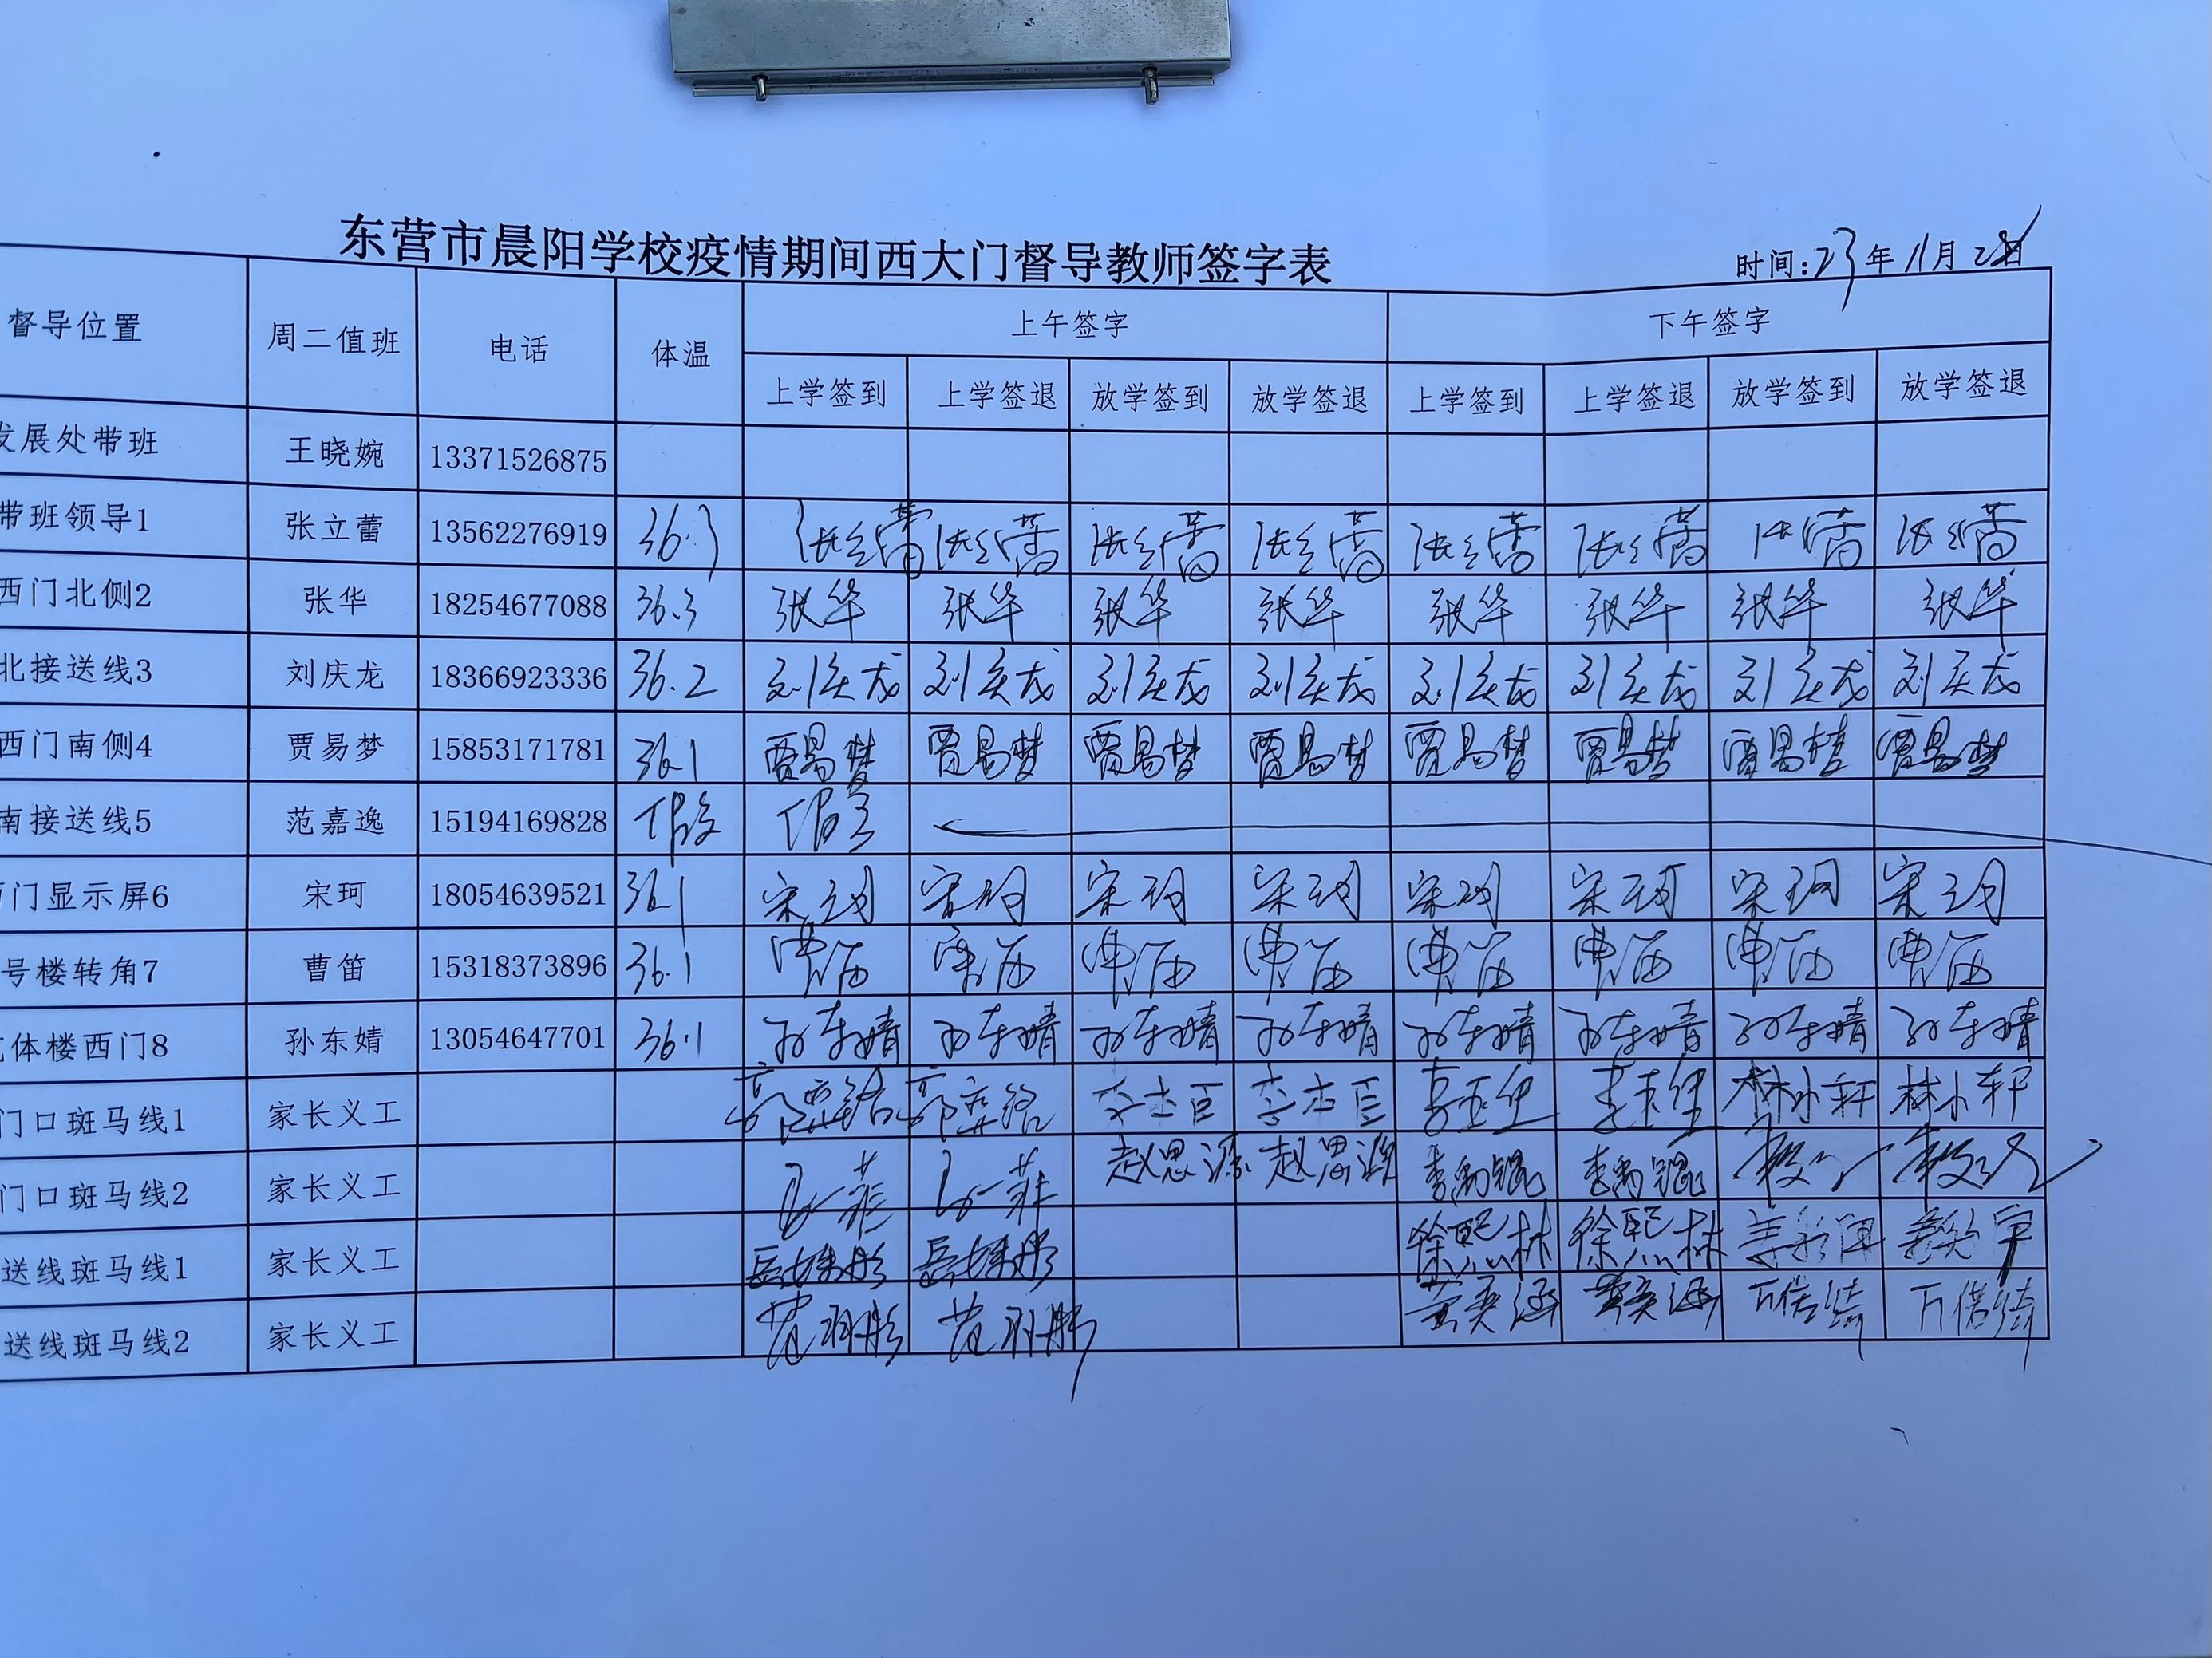 东营市晨阳学校疫情期间西大门督导教师签字表
时间:23年11月28日
督导位置 周二值班 电话 体温 上午签字 下午签字
上学签到 上学签退 放学签到 放学签退 上学签到 上学签退 放学签到 放学签退
发展处带班 王晓婉 13371526875
带班领导1 张立蕾 13562276919 36.3 张立蕾 张立蕾 张立蕾 张立蕾 张立蕾 张立蕾 张立蕾 张立蕾
西门北侧2 张华 18254677088 36.3 张华 张华 张华 张华 张华 张华 张华 张华
北接送线3 刘庆龙 18366923336 36.2 刘庆龙 刘庆龙 刘庆龙 刘庆龙 刘庆龙 刘庆龙 刘庆龙 刘庆龙
西门南侧4 贾易梦 15853171781 36.1 贾易梦 贾易梦 贾易梦 贾易梦 贾易梦 贾易梦 贾易梦 贾易梦
南接送线5 范嘉逸 15194169828
门显示屏6 宋珂 18054639521 36.1 宋珂 宋珂 宋珂 宋珂 宋珂 宋珂 宋珂 宋珂
号楼转角7 曹笛 15318373896 36.1 曹笛 曹笛 曹笛 曹笛 曹笛 曹笛 曹笛 曹笛
体楼西门8 孙东婧 13054647701 36.1 孙东婧 孙东婧 孙东婧 孙东婧 孙东婧 孙东婧 孙东婧 孙东婧
门口斑马线1 家长义工 林小轩 林小轩
门口斑马线2 家长义工 赵思源 赵思源 李禹锟 李禹锟
送线斑马线1 家长义工 岳姝彤 岳姝彤 徐熙林 徐熙林
送线斑马线2 家长义工 范羽彤 范羽彤 黄奕涵 黄奕涵 万偌绮 万偌绮